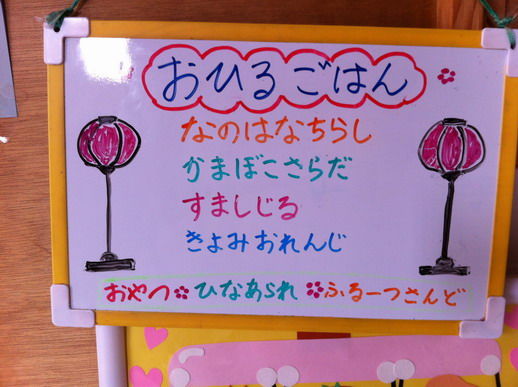 おひるごはん
なのはなちらし
かまぼこさらだ
すましじる
きよみおれんじ
おやつ ひなあられ ふるーつさんど